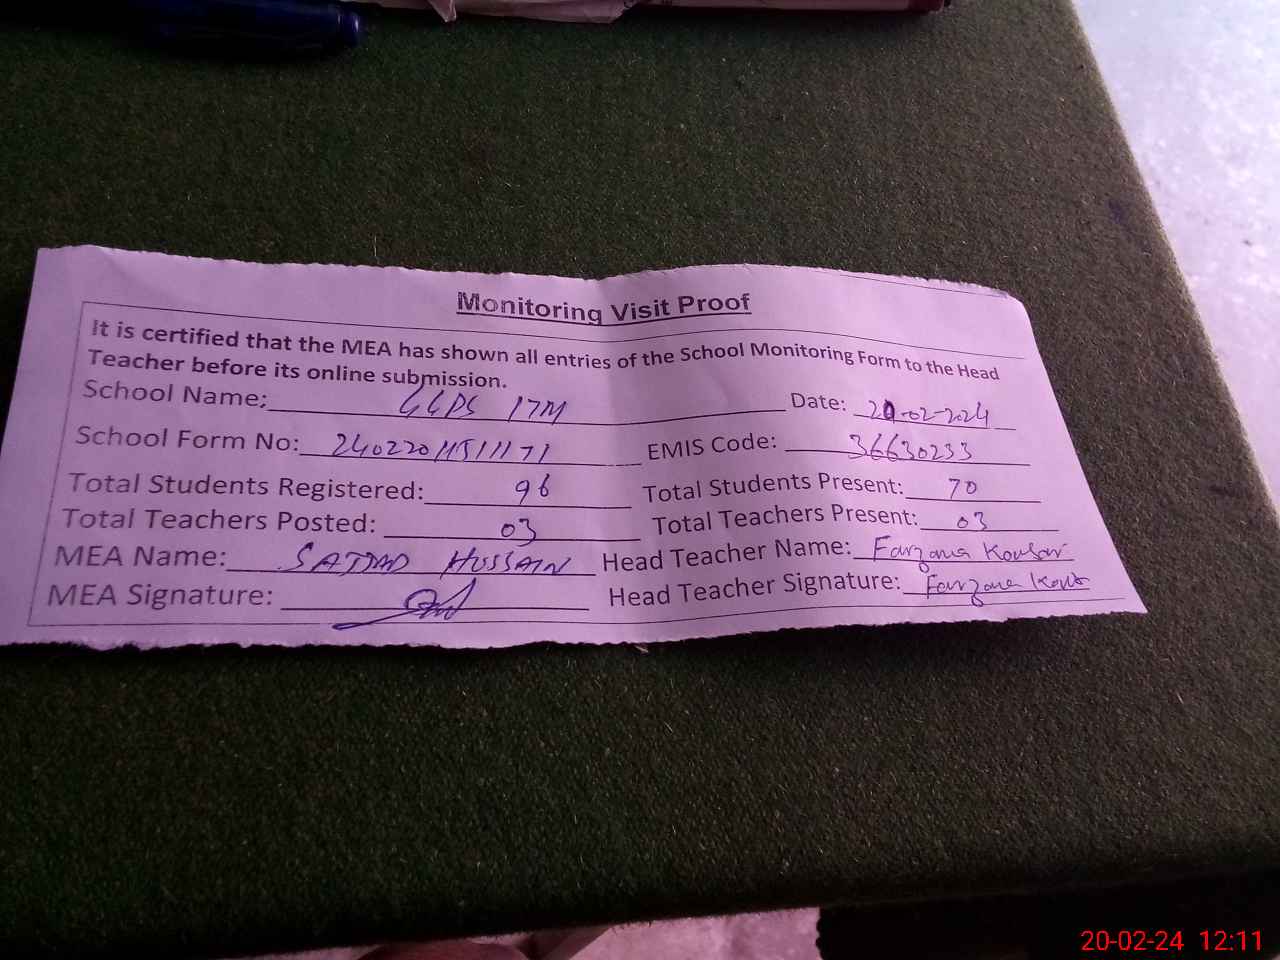 Monitoring Visit Proof
It is certified that the MEA has shown all entries of the School Monitoring Form to the Head
Teacher before its online submission.
School Name: GGPS 17M Date: 20-02-2024
School Form No: 2402201151171 EMIS Code: 36630233
Total Students Registered: 96 Total Students Present: 70
Total Teachers Posted: 03 Total Teachers Present: 03
MEA Name: SAJJAD HUSSAIN Head Teacher Name: Farzana Kousar
MEA Signature: Head Teacher Signature: Farzana Kous
20-02-24 12:11